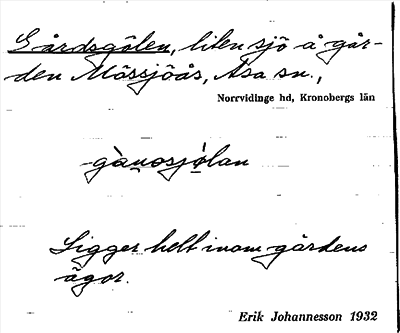 Gårdsgölen, liten sjö å går-
den Mössjöås, Asa sn.,
Norrvidinge hd, Kronobergs län
Ligger helt inom gårdens
ägor.
Erik Johannesson 1932